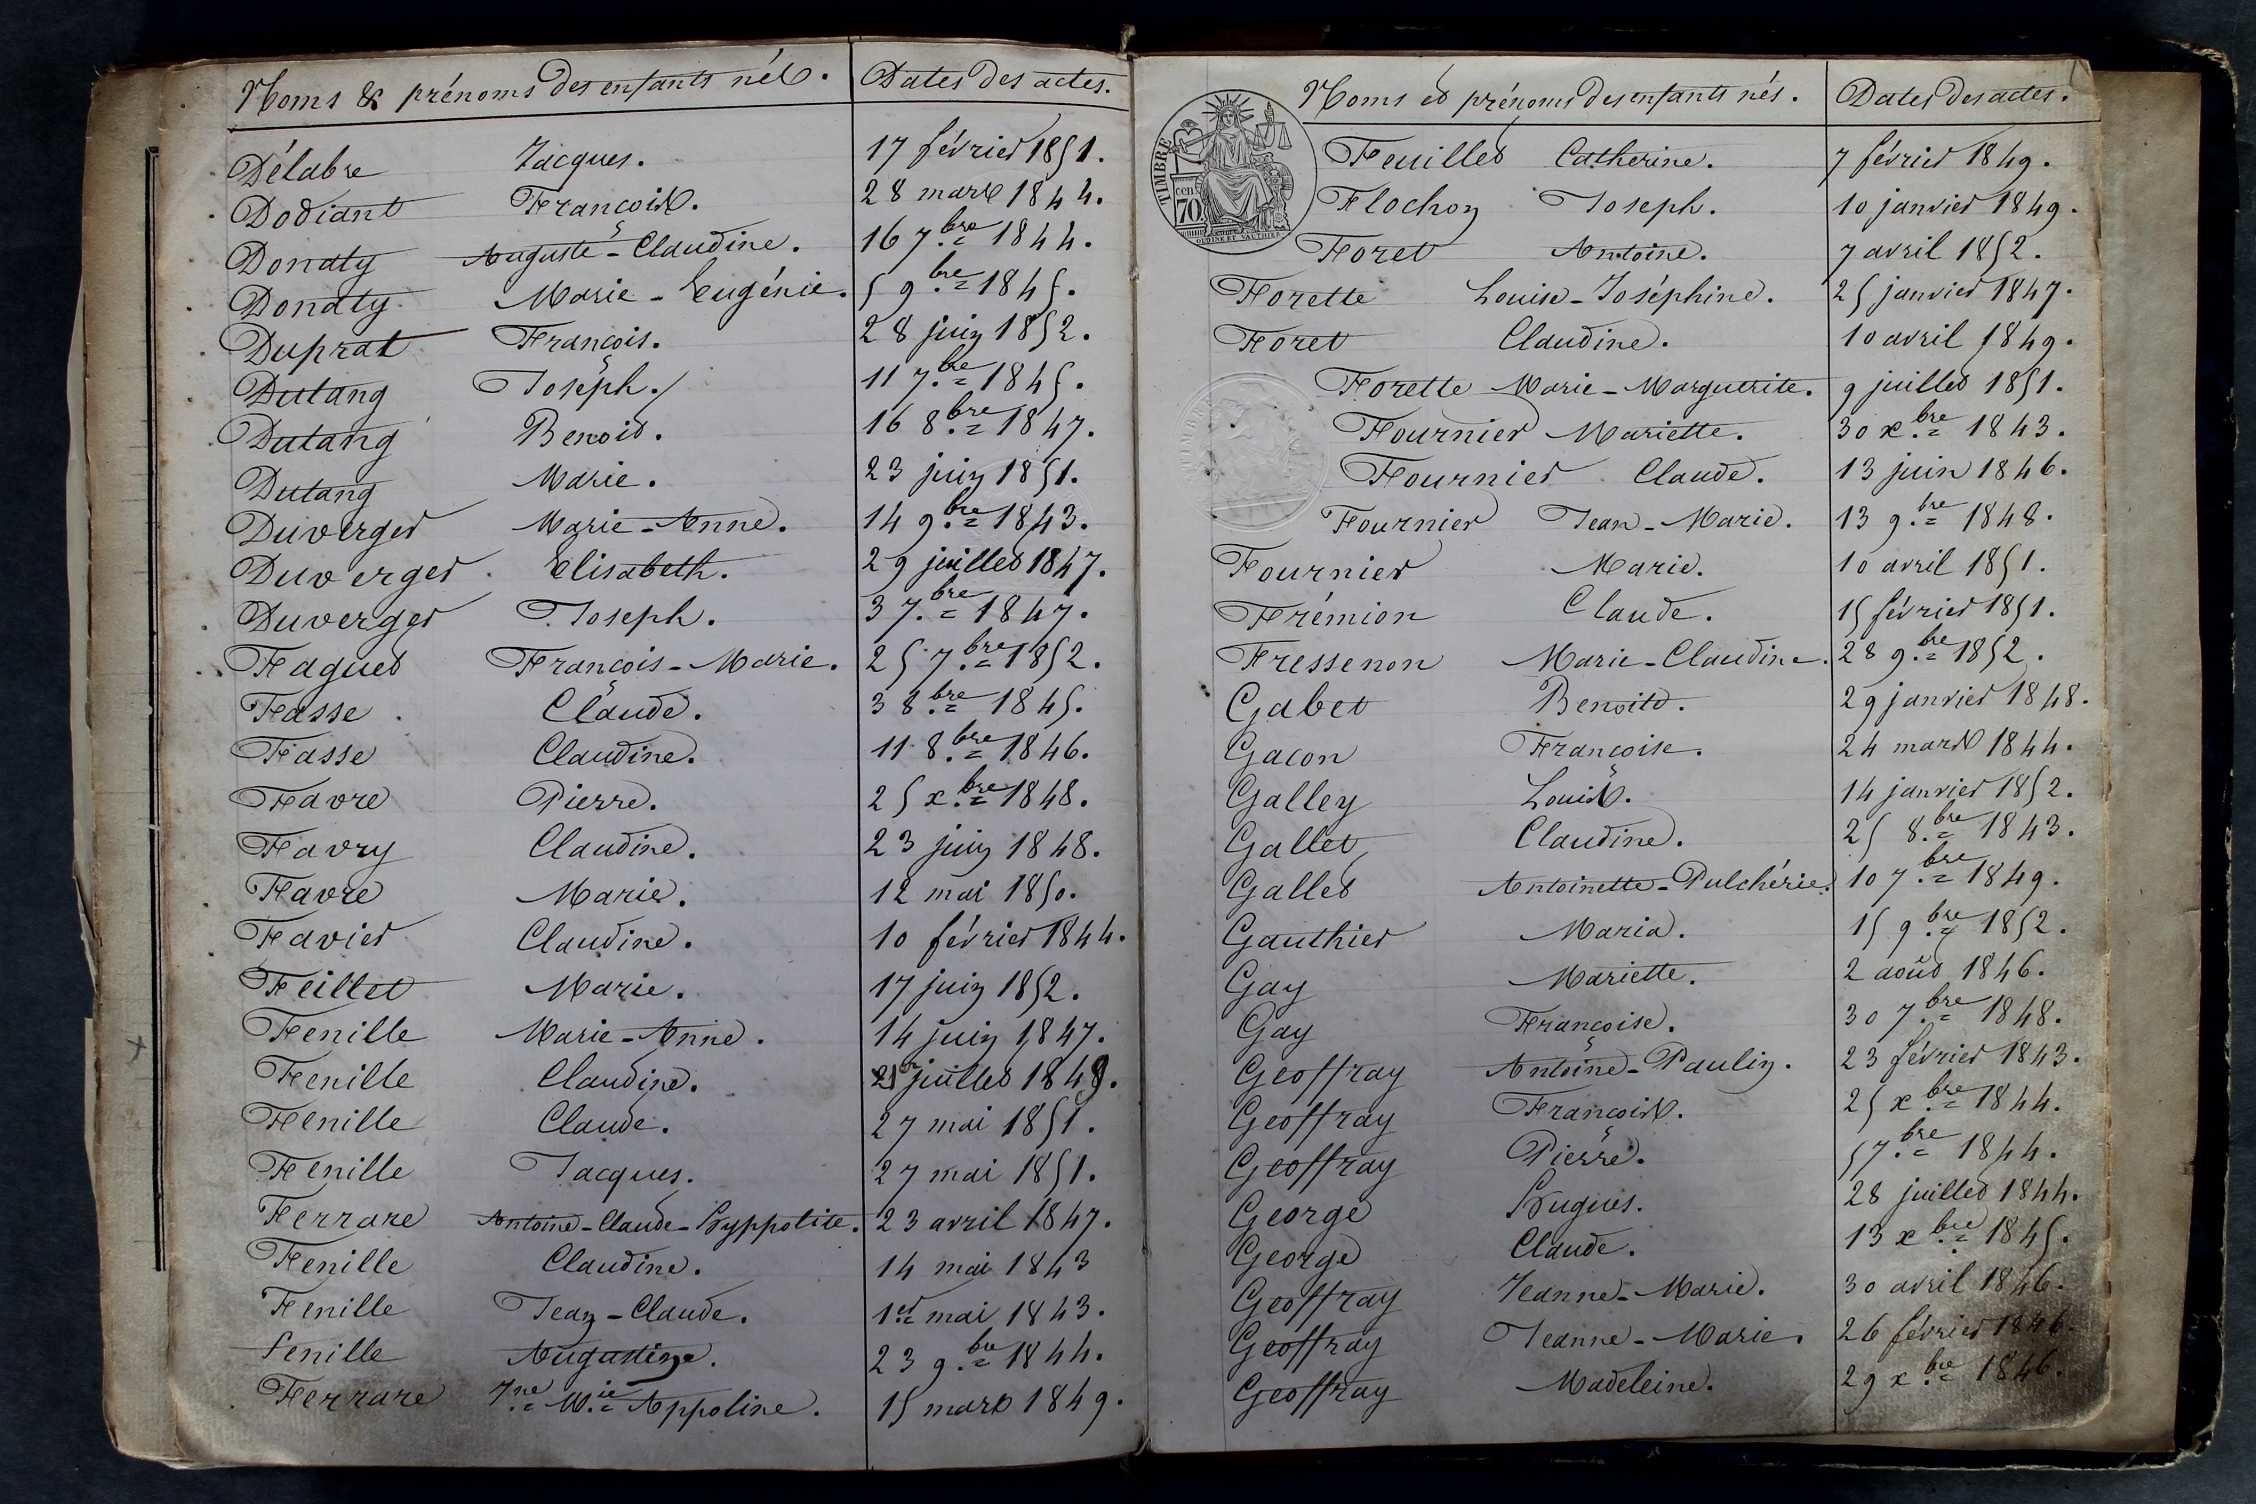 Noms & prénoms des enfants nés. Dates des actes.
Délabre Jacques. 17 février 1851.
Dodiant François. 28 mars 1844.
Donaty Auguste-Claudine. 16 7.bre 1844.
Donaty Marie-Eugénie. 5 9.bre 1845.
Duprat François. 28 juin 1852.
Dutang Joseph. 11 7.bre 1845.
Dutang Benoit. 16 8.bre 1847.
Dutang Marie. 23 juin 1851.
Duverger Marie-Anne. 14 9.bre 1843.
Duverger Elisabeth. 29 juillet 1847.
Duverger Joseph. 3 7.bre 1847.
Faguet François-Marie. 25 7.bre 1852.
Fasse Claude. 3 8.bre 1845.
Fasse Claudine. 11 8.bre 1846.
Favre Pierre. 25 x.bre 1848.
Favry Claudine. 23 juin 1848.
Favre Marie. 12 mai 1850.
Favier Claudine. 10 février 1844.
Feillet Marie. 17 juin 1852.
Fenille Marie-Anne. 14 juin 1847.
Fenille Claudine. juillet
Fenille Claude. 27 mai 1851.
Fenille Jacques. 27 mai 1851.
Ferrare Antoine-Claude-Hyppolite. 23 avril 1847.
Fenille Claudine. 14 mai 1843
Fenille Jean-Claude. 1er mai 1843.
Fenille Augustine. 23 9.bre 1844.
Ferrare J.ne M.ie Appoline. 15 mars 1849.
TIMBRE
70 cen
OUDINE ET VAUTHIER
Noms et prénoms des enfants nés. Dates des actes.
Feuillet Catherine. 7 février 1849.
Flochon Joseph. 10 janvier 1849.
Foret Antoine. 7 avril 1852.
Forette Louise-Joséphine. 25 janvier 1847.
Foret Claudine. 10 avril 1849.
Forette Marie-Marguerite. 9 juillet 1851.
Fournier Mariette. 30 x.bre 1843.
Fournier Claude. 13 juin 1846.
Fournier Jean-Marie. 13 9.bre 1848.
Fournier Marie. 10 avril 1851.
Frémion Claude. 15 février 1851.
Fressenon Marie-Claudine. 28 9.bre 1852.
Gabet Benoite. 29 janvier 1848.
Gacon Françoise. 24 mars 1844.
Galley Louis. 14 janvier 1852.
Gallet Claudine. 25 8.bre 1843.
Gallet Antoinette-Pulchérie. 10 7.bre 1849.
Gauthier Maria. 15 9.bre 1852.
Gay Mariette. 2 août 1846.
Gay Françoise. 30 7.bre 1848.
Geoffray Antoine-Paulin. 23 février 1843.
Geoffray François. 25 x.bre 1844.
Geoffray Pierre. 5 7.bre 1844.
George Hugues. 28 juillet 1844.
George Claude. 13 x.bre 1845.
Geoffray Jeanne-Marie. 30 avril 1846.
Geoffray Jeanne-Marie. 26 février 1846.
Geoffray Madeleine. 29 x.bre 1846.